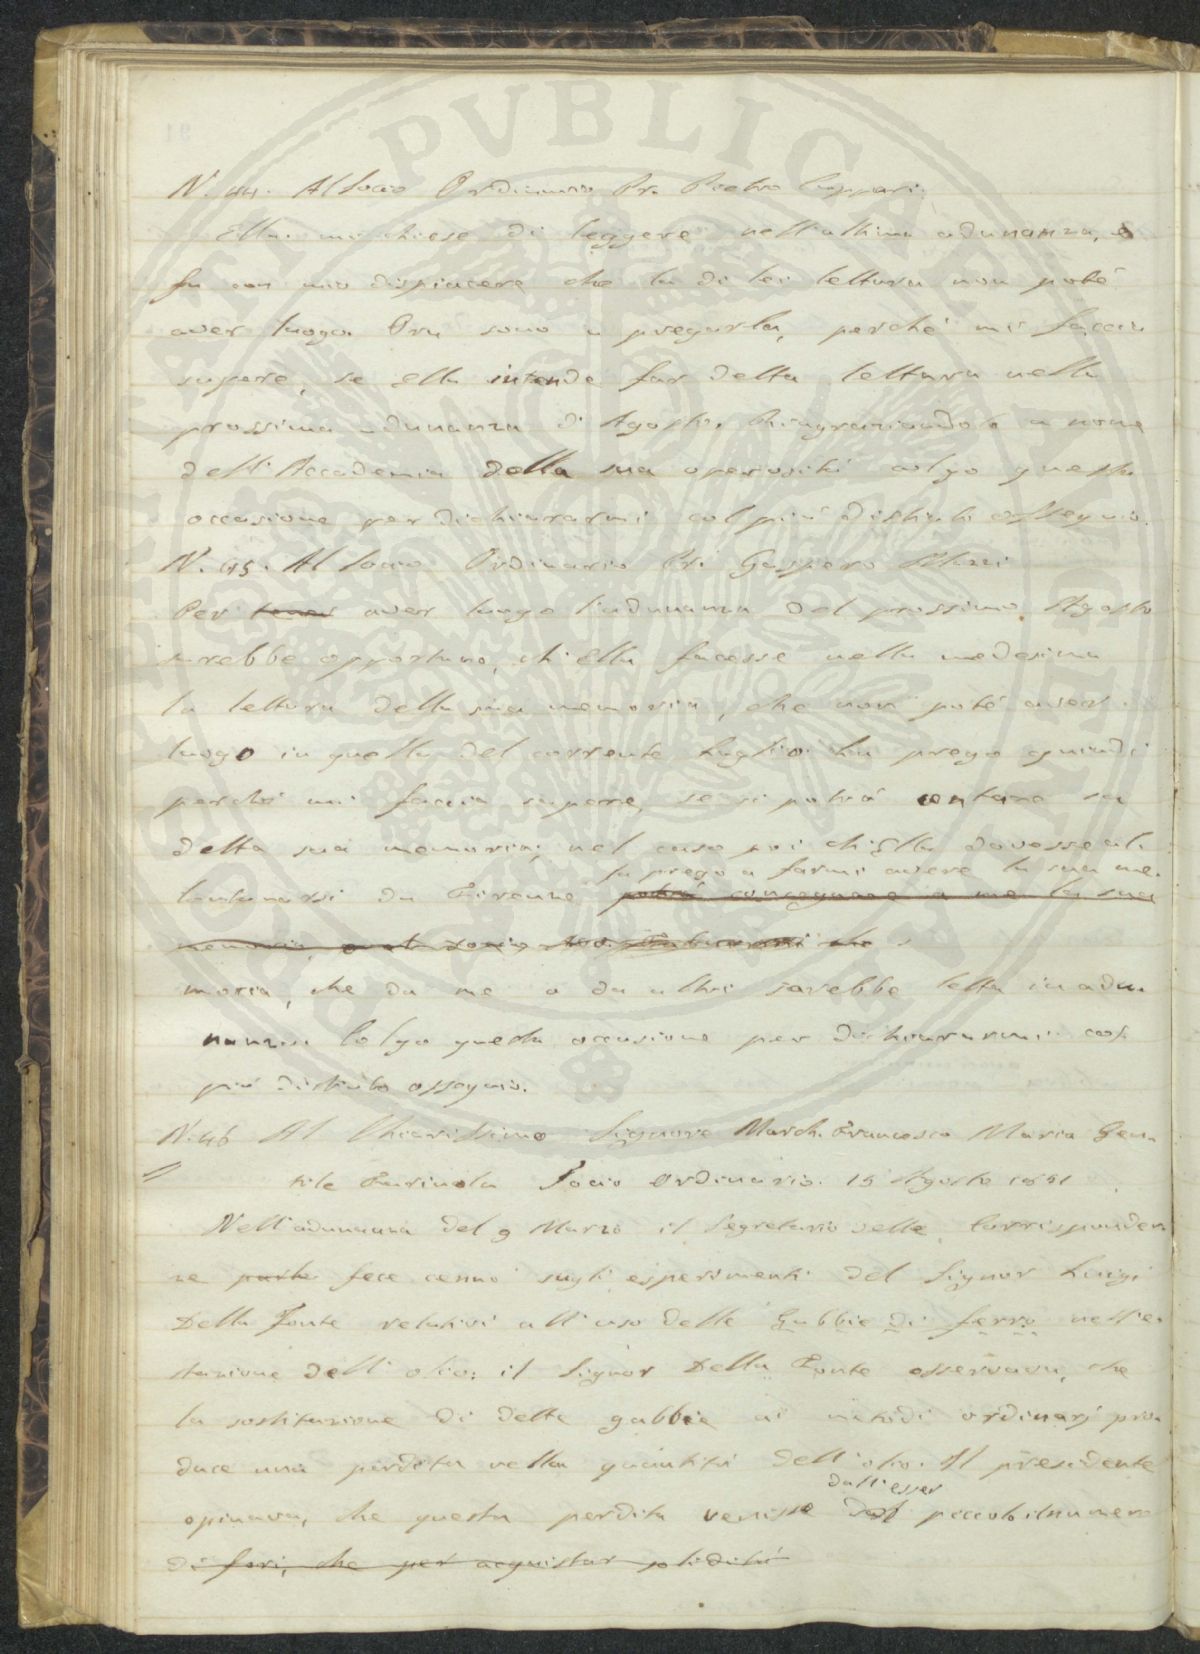 N. 44. Al Socio Ordinario Pr. Pietro Cuppari.
Ella mi chiese di leggere nell'ultima adunanza, e
fu con mio dispiacere che la di lei lettura non poté
aver luogo. Ora sono a pregarla, perché mi faccia
sapere, se ella intende far detta lettura nella
prossima adunanza di Agosto. Ringraziandola a nome
dell'Accademia della sua operosità colgo questa
occasione per dichiararmi col più distinto ossequio.
N. 45. Al Socio Ordinario Gaspero
Per aver luogo l'adunanza del prossimo Agosto
sarebbe opportuno, ch'Ella facesse nella medesima
la lettura della sua memoria, che non poté aver
luogo in quella del corrente Luglio. La prego quindi
perché mi faccia sapere, se si potrà contare su
detta sua memoria; nel caso poi ch'Ella dovesse al
la prego a farmi avere la sua me-
lontanarsi da Firenze potrà consegnare a me la sua
memoria, o al socio che
moria, che da me o da altri sarebbe letta in adu-
nanza. Colgo questa occasione per dichiararmi col
più distinto ossequio.
N. 46 Al Chiarissimo Signore March. Francesco Maria Gen-
tile Farinola Socio Ordinario. 15 Agosto 1851
Nell'adunanza del 9 Marzo il Segretario delle Corrisponden-
ze parla fece cenno sugli esperimenti del Signor Luigi
Della Fonte relativi all'uso delle Gabbie di ferro nell'e-
strazione dell'olio: il Signor Della Fonte osservava, che
la sostituzione di dette gabbie ai metodi ordinarj pro-
duce una perdita nella quantità dell'olio. Il presidente
dall'esser
opinava, che questa perdita venisse dal piccolo il numero
di fori, che per acquistar solidità